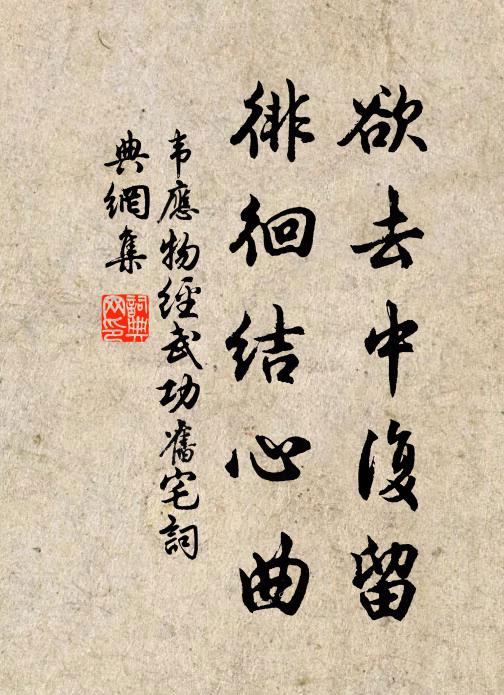 欲去中復留
徘徊結心曲
韦應物經武功舊宅詞
典網集
詞典
网印